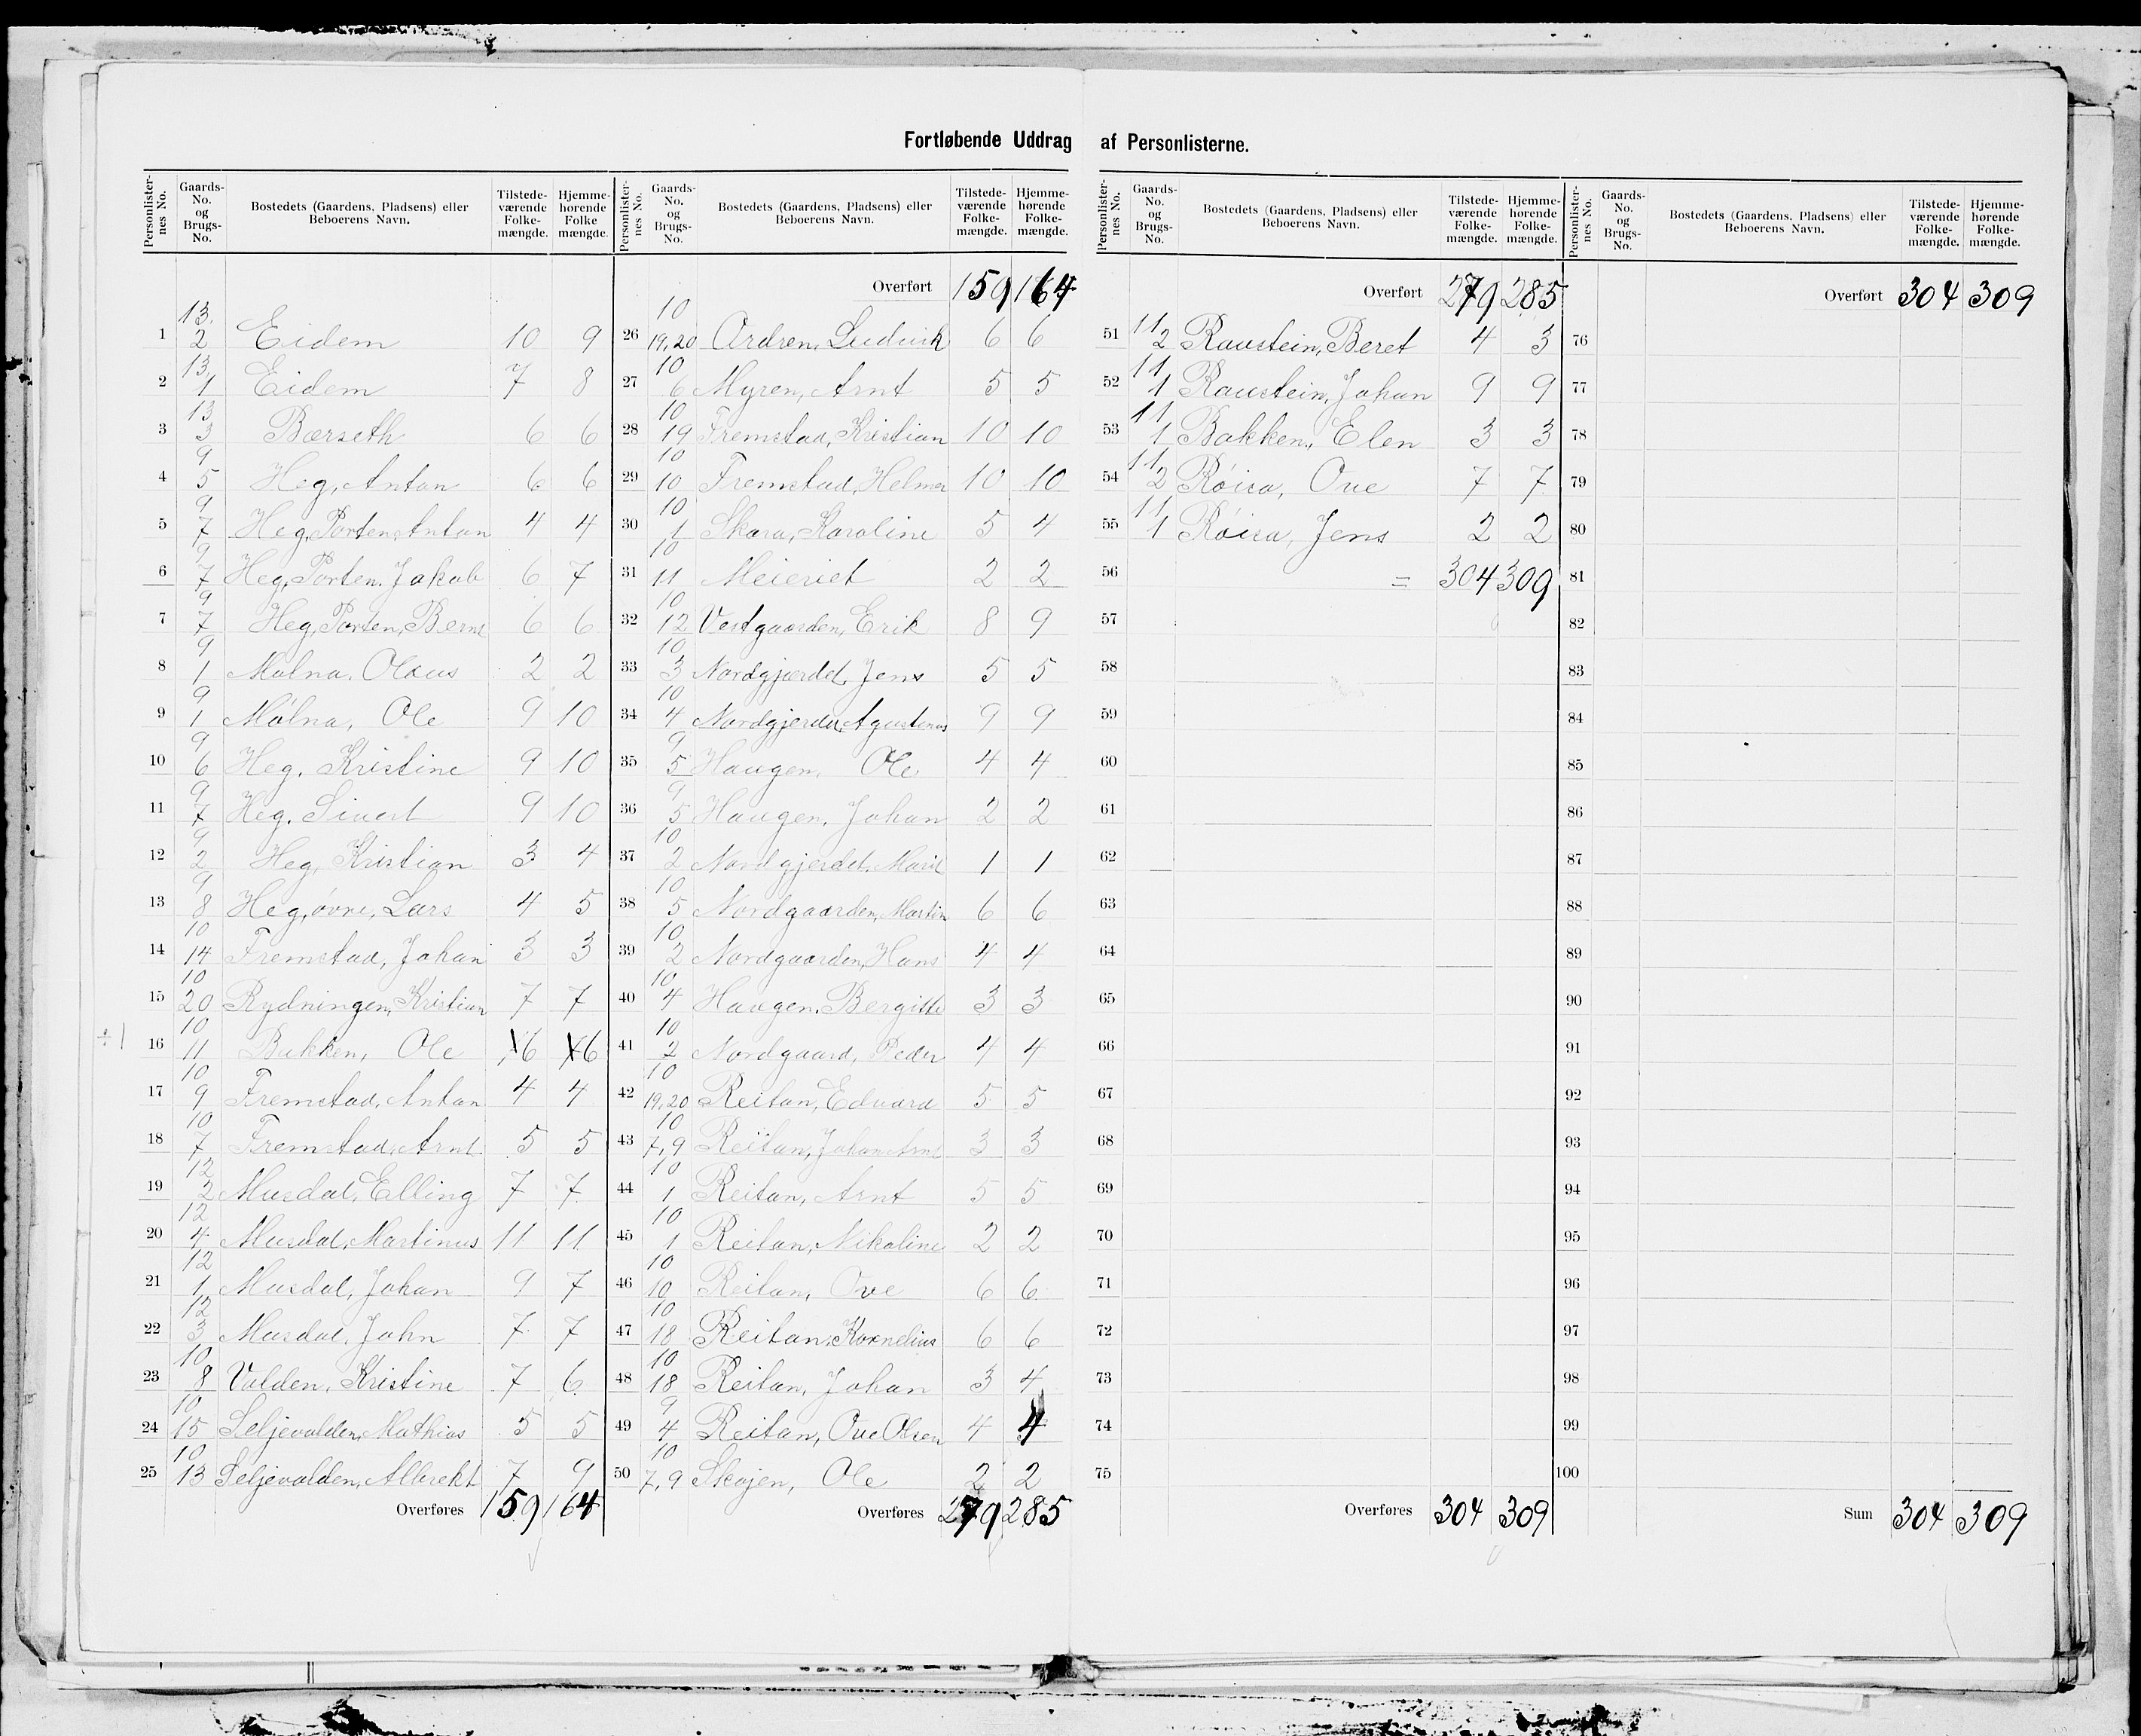 Fortløbende Uddrag af Personlisterne.
Personlister-nes No. Gaards-No. og Brugs-No. Bostedets (Gaardens, Pladsens) eller Beboerens Navn. Tilstede-værende Folke-mængde. Hjemme-hørende Folke mængde.
1 13, 2 Eidem 10 9
2 13, 1 Eidem 7 8
3 13 3 Børseth 6 6
4 9 5 Heg, Anton 6 6
5 9 7 Heg, Porten, Anton 4 4
6 9 7 Heg, Porten, Jakob 6 7
7 9 7 Heg, Porten, Bernt 6 6
8 9 1 Mølna, Olaus 2 2
9 9 1 Mølna, Ole 9 10
10 9 6 Heg, Kristine 9 10
11 9 7 Heg, Sivert 9 10
12 9 2 Heg, Kristian 3 4
13 9 8 Heg, øvre, Lars 4 5
14 10 14 Fremstad, Johan 3 3
15 10 20 Rydningen, Kristian 7 7
÷1 16 10 11 Bakken, Ole 6 6
17 10 9 Fremstad, Anton 4 4
18 10 7 Fremstad, Arnt 5 5
19 12 2 Musdal, Elling 7 7
20 12 4 Musdal, Martinus 11 11
21 12 1 Musdal, Johan 9 7
22 12 3 Musdal, John 7 7
23 10 8 Volden, Kristine 7 6
24 10 15 Seljevolden, Mathias 5 5
25 10 13 Seljevolden, Albrekt 7 9
Overføres 159 164
Personlister-nes No. Gaards-No. og Brugs-No. Bostedets (Gaardens, Pladsens) eller Beboerens Navn. Tilstede-værende Folke-mængde. Hjemme-hørende Folke-mængde.
Overført 159 164
26 10 19,20 Ludvik 6 6
27 10 6 Myren, Arnt 5 5
28 10 19 Fremstad, Kristian 10 10
29 10 10 Fremstad, Helmer 10 10
30 10 1 Skara, Karoline 5 4
31 10 11 Meieriet 2 2
32 10 12 Vestgaarden, Erik 8 9
33 10 3 Nordgjærdet, Jens 5 5
34 10 4 Nordgjerdet, Agustinus 9 9
35 9 5 Haugen, Ole 4 4
36 9 5 Haugen, Johan 2 2
37 10 2 Nordgjerdet, Marit 1 1
38 10 5 Nordgaarden, Martin 6 6
39 10 2 Nordgaarden, Hans 4 4
40 10 4 Haugen, Bergitte 3 3
41 10 2 Nordgaard, Peder 4 4
42 10 19,20 Reitan, Edvard 5 5
43 10 7,9 Reitan, Johan Arnt 3 3
44 10 1 Reitan, Arnt 5 5
45 10 1 Reitan, Nikoline 2 2
46 10 10 Reitan, Ove 6 6
47 10 18 Reitan, Kornelius 6 6
48 10 18 Reitan, Johan 3 4
49 9 4 Reitan, Ove Olsen 4 4
50 10 7,9 Skajen, Ole 2 2
Overføres 279 285
Personlister-nes No. Gaards-No. og Brugs-No. Bostedets (Gaardens, Pladsens) eller Beboerens Navn. Tilstede-værende Folke-mængde. Hjemme-hørende Folke-mængde.
Overført 279 285
51 11 2 Raustein, Beret 4 3
52 11 1 Raustein, Johan 9 9
53 11 1 Bakken, Elen 3 3
54 11 2 Røisa, Ove 7 7
55 11 1 Røisa, Jens 2 2
56 = 304 309
57
58
59
60
61
62
63
64
65
66
67
68
69
70
71
72
73
74
75
Overføres 304 309
Personlister-nes No. Gaards-No. og Brugs-No. Bostedets (Gaardens, Pladsens) eller Beboerens Navn. Tilstede-værende Folke-mængde. Hjemme-hørende Folke-mængde.
Overført 304 309
76
77
78
79
80
81
82
83
84
85
86
87
88
89
90
91
92
93
94
95
96
97
98
99
100
Sum 304 309